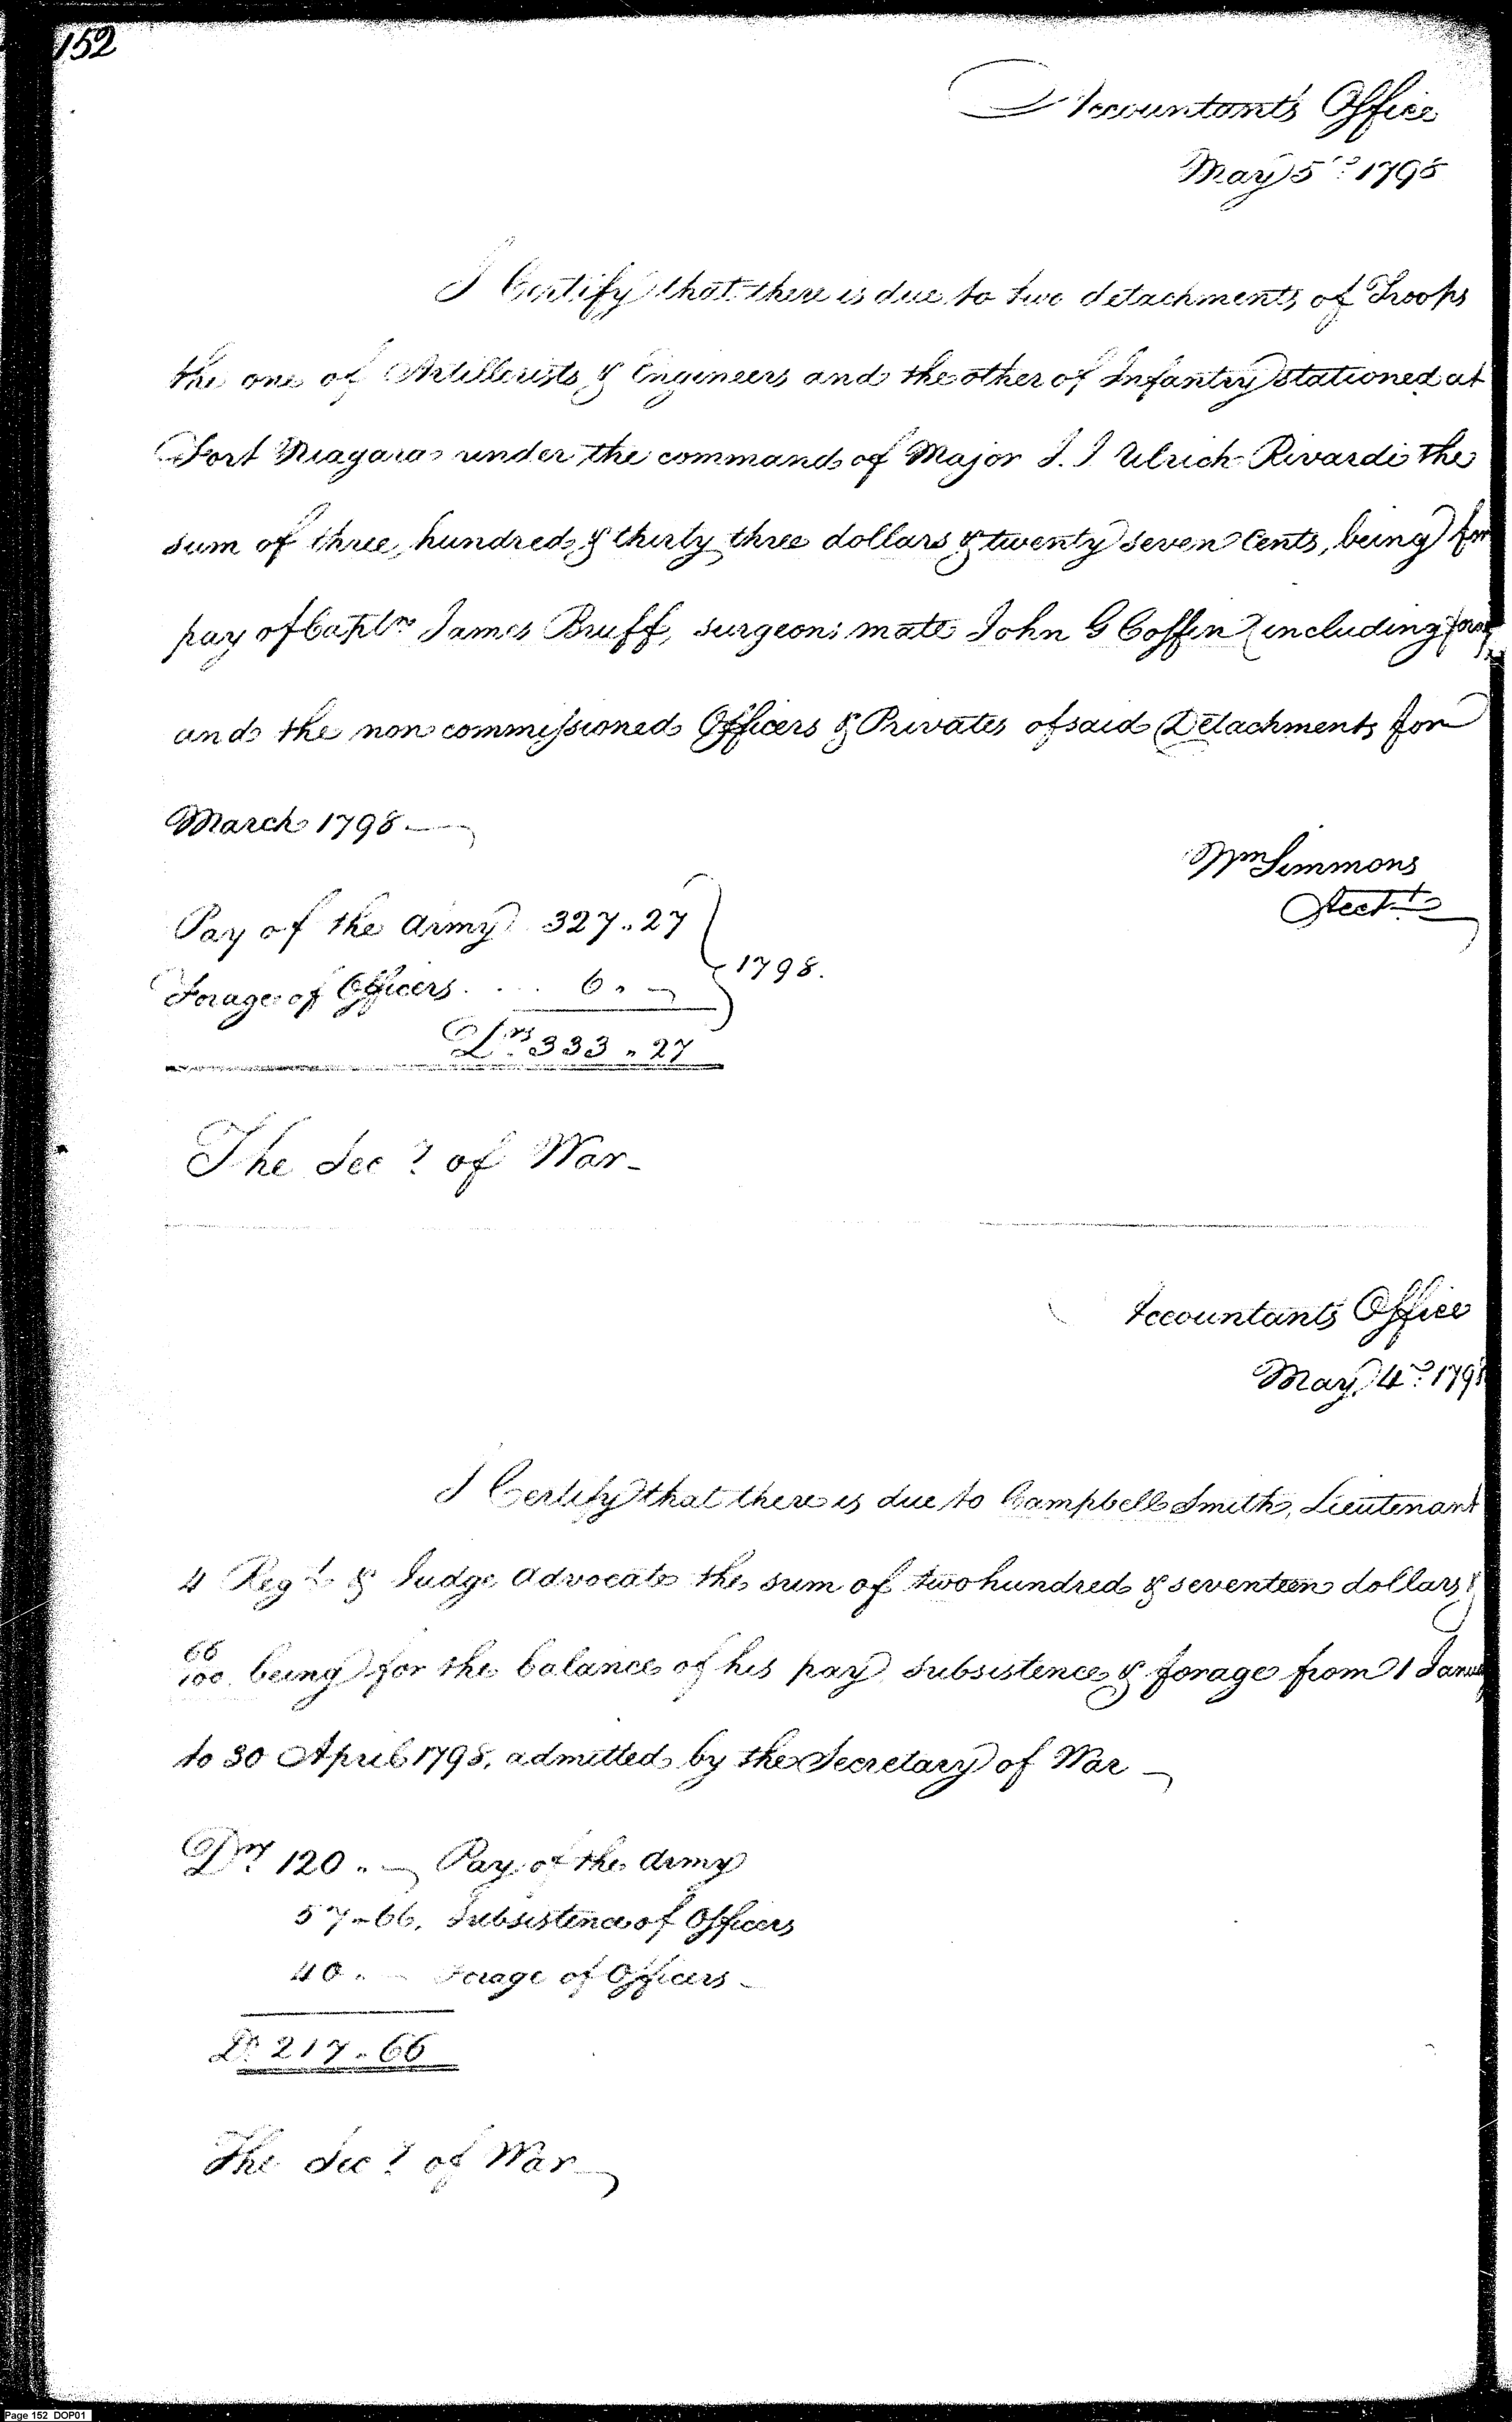 152
Accountants Office
May 5th 1798
I Certify that there is due to two detachments of Troops
the one of Artillerists & Engineers and the other of Infantry stationed at
Fort Niagara under the command of Major J. J. Ulrich Rivardi the
sum of three hundred & thirty three dollars & twenty seven Cents, being for
pay of Captn James Bruff, surgeons mate John G Coffin (including forage
and the non commissioned Officers & Privates of said Detachments for
March 1798
Wm Simmons
Acct
Pay of the army 327.27
1798.
Forage of Officers 6.
Drs 333.27
The Secy of War
Accountants Office
May 4th 1798
I Certify that there is due to Campbell Smith, Lieutenant
4 Regt & Judge Advocate the sum of two hundred & seventeen dollars &
66/100 being for the balance of his pay subsistence & forage from 1 January
to 30 April 1798, admitted by the Secretary of War
Drs 120. Pay of the Army
57.66. Subsistence of Officers
40. Forage of Officers
Ds 217.66
The Secy of War
Page 152 DOP01